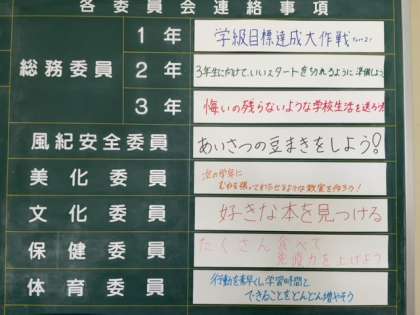 各委員会連絡事項
総務委員
1年
学級目標達成大作戦 Part2!
2年
3年生に向けて、いいスタートを切れるように準備しよう
3年
悔いの残らないような学校生活を送ろう
風紀安全委員
あいさつの豆まきをしよう!
美化委員
次の学年に
むねを張ってわたせるような教室を作ろう!
文化委員
好きな本を見つける
保健委員
たくさん食べて
免疫力を上げよう
体育委員
行動を素早くし、学習時間と
できることをどんどん増やそう